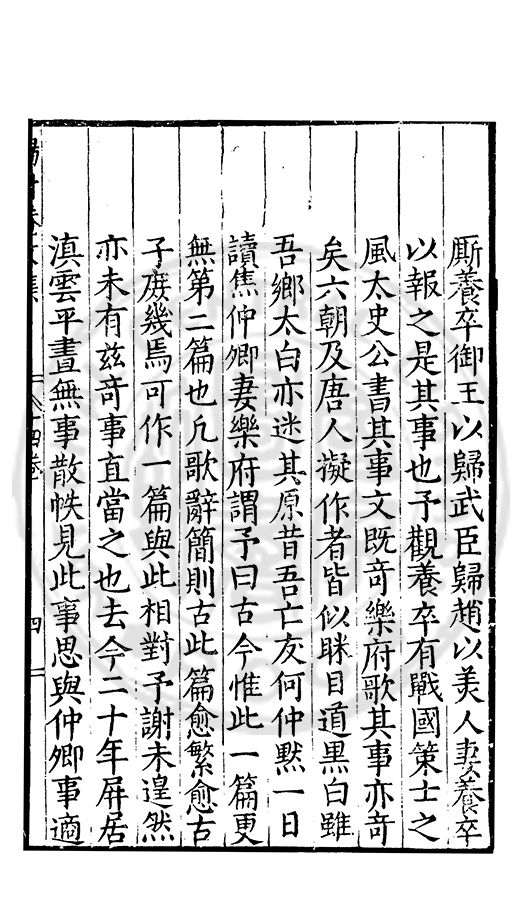 厮養卒御王以歸武臣歸趙以美人妻養卒
以報之是其事也予觀養卒有戰國策士之
風太史公書其事文既奇樂府歌其事亦奇
矣六朝及唐人擬作者皆似眯目道黑白雖
吾鄉太白亦迷其原昔吾亡友何仲默一日
讀焦仲卿妻樂府謂予曰古今惟此一篇更
無第二篇也凡歌辭簡則古此篇愈繁愈古
子庻幾焉可作一篇與此相對予謝未遑然
亦未有兹奇事直當之也去今二十年屏居
滇雲平晝無事散帙見此事思與仲卿事適
四